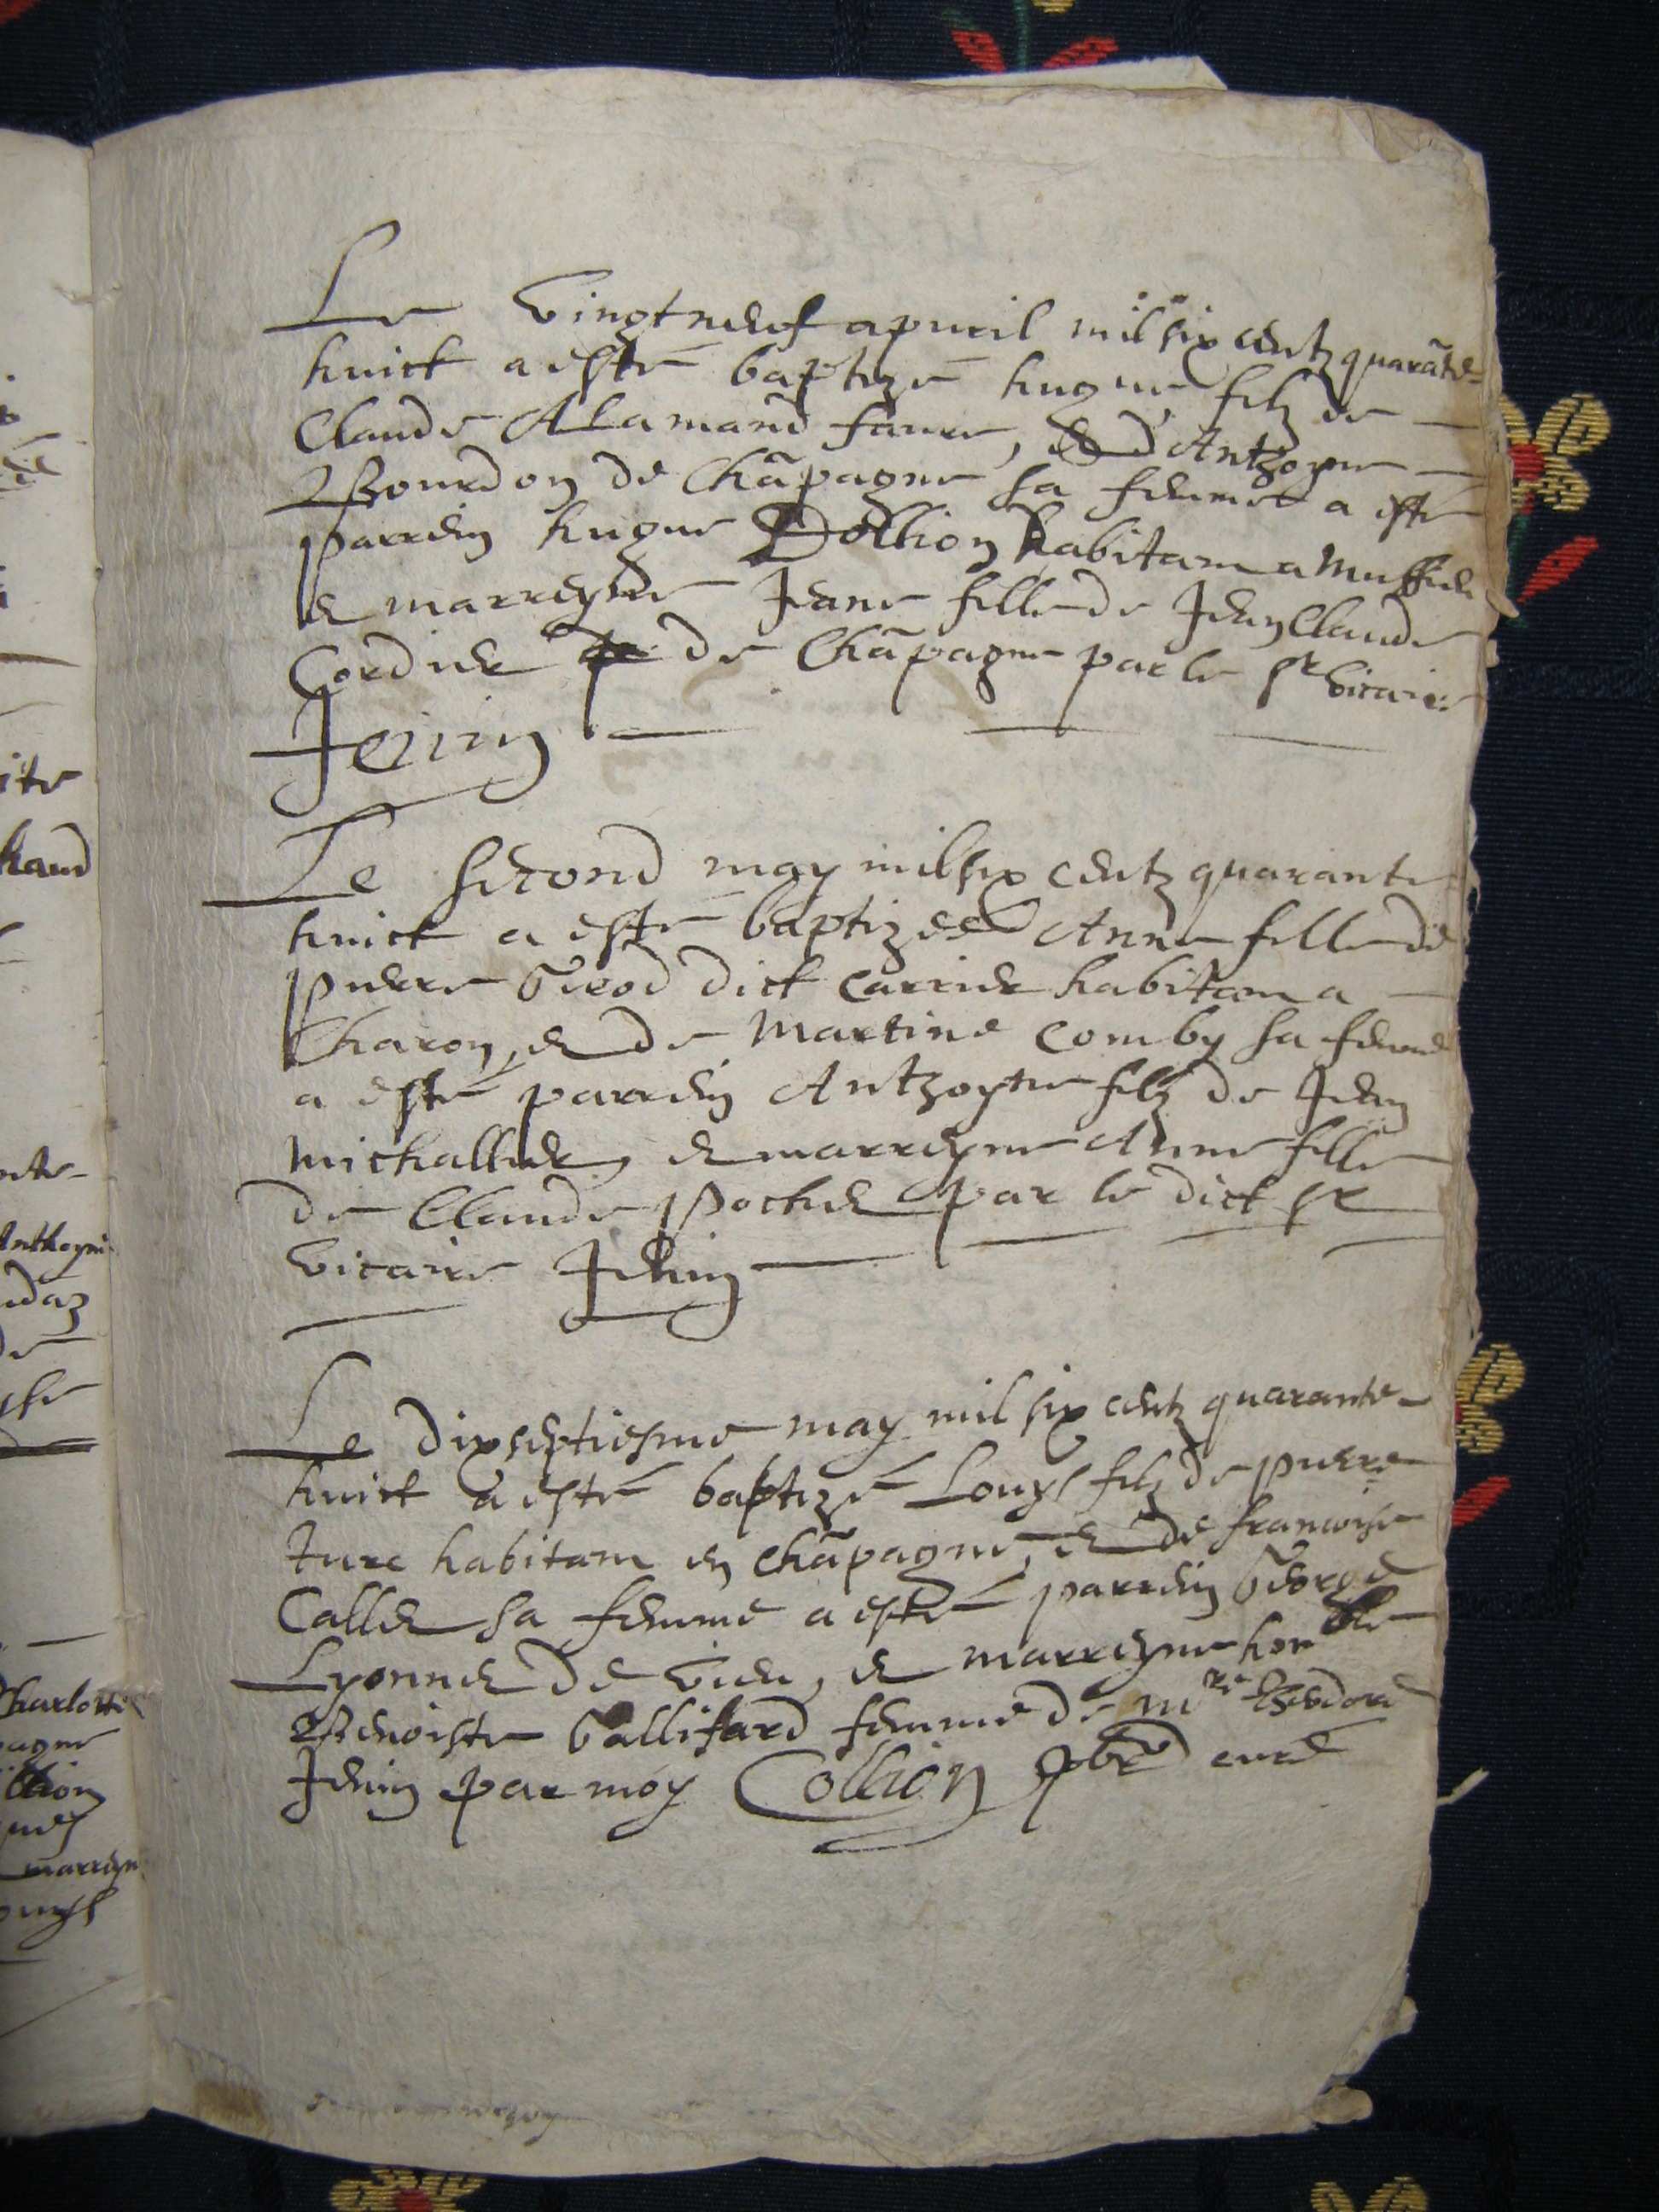 Le vingtneuf apvril mil six centz quarãte
huict a esté baptizé hugue filz de
Claude Alamand faure, & d'Anthoyne
Bourdon de Chãpagne sa femme a esté
parrein hugue Dollion habitant a
& marreyne Jeane fille de Jean Claude
Cordier de Chãpagne par le sr vicaire
Jenin
Le second may mil six centz quarante
huict a esté baptizee Anne fille de
Pierre Girod dict Carrier habitant a
Charon, & de Martine Comby sa femme
a esté parrein Anthoyne filz de Jean
Michallier, & marreyne Anne fille
de Claude Pochet par le dict sr
vicaire Jenin
Le dixseptiesme may mil six centz quarante
huict a esté baptizé Louys filz de Pierre
Turc habitant en Chãpagne, & de francoise
Callet sa femme a esté parrein George
Lyonnet de vieu, & marreyne honble
Benoiste Gallifard femme de mre Theodore
Jenin par moy Collion pbre curé
ite
haud
Anthoyne
Charlotte
pagne
llion
marreyn